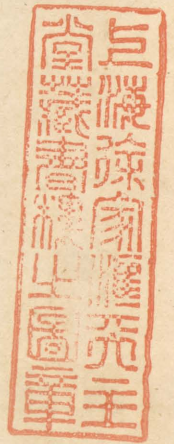 上海徐家匯天主
堂藏書樓之圖章